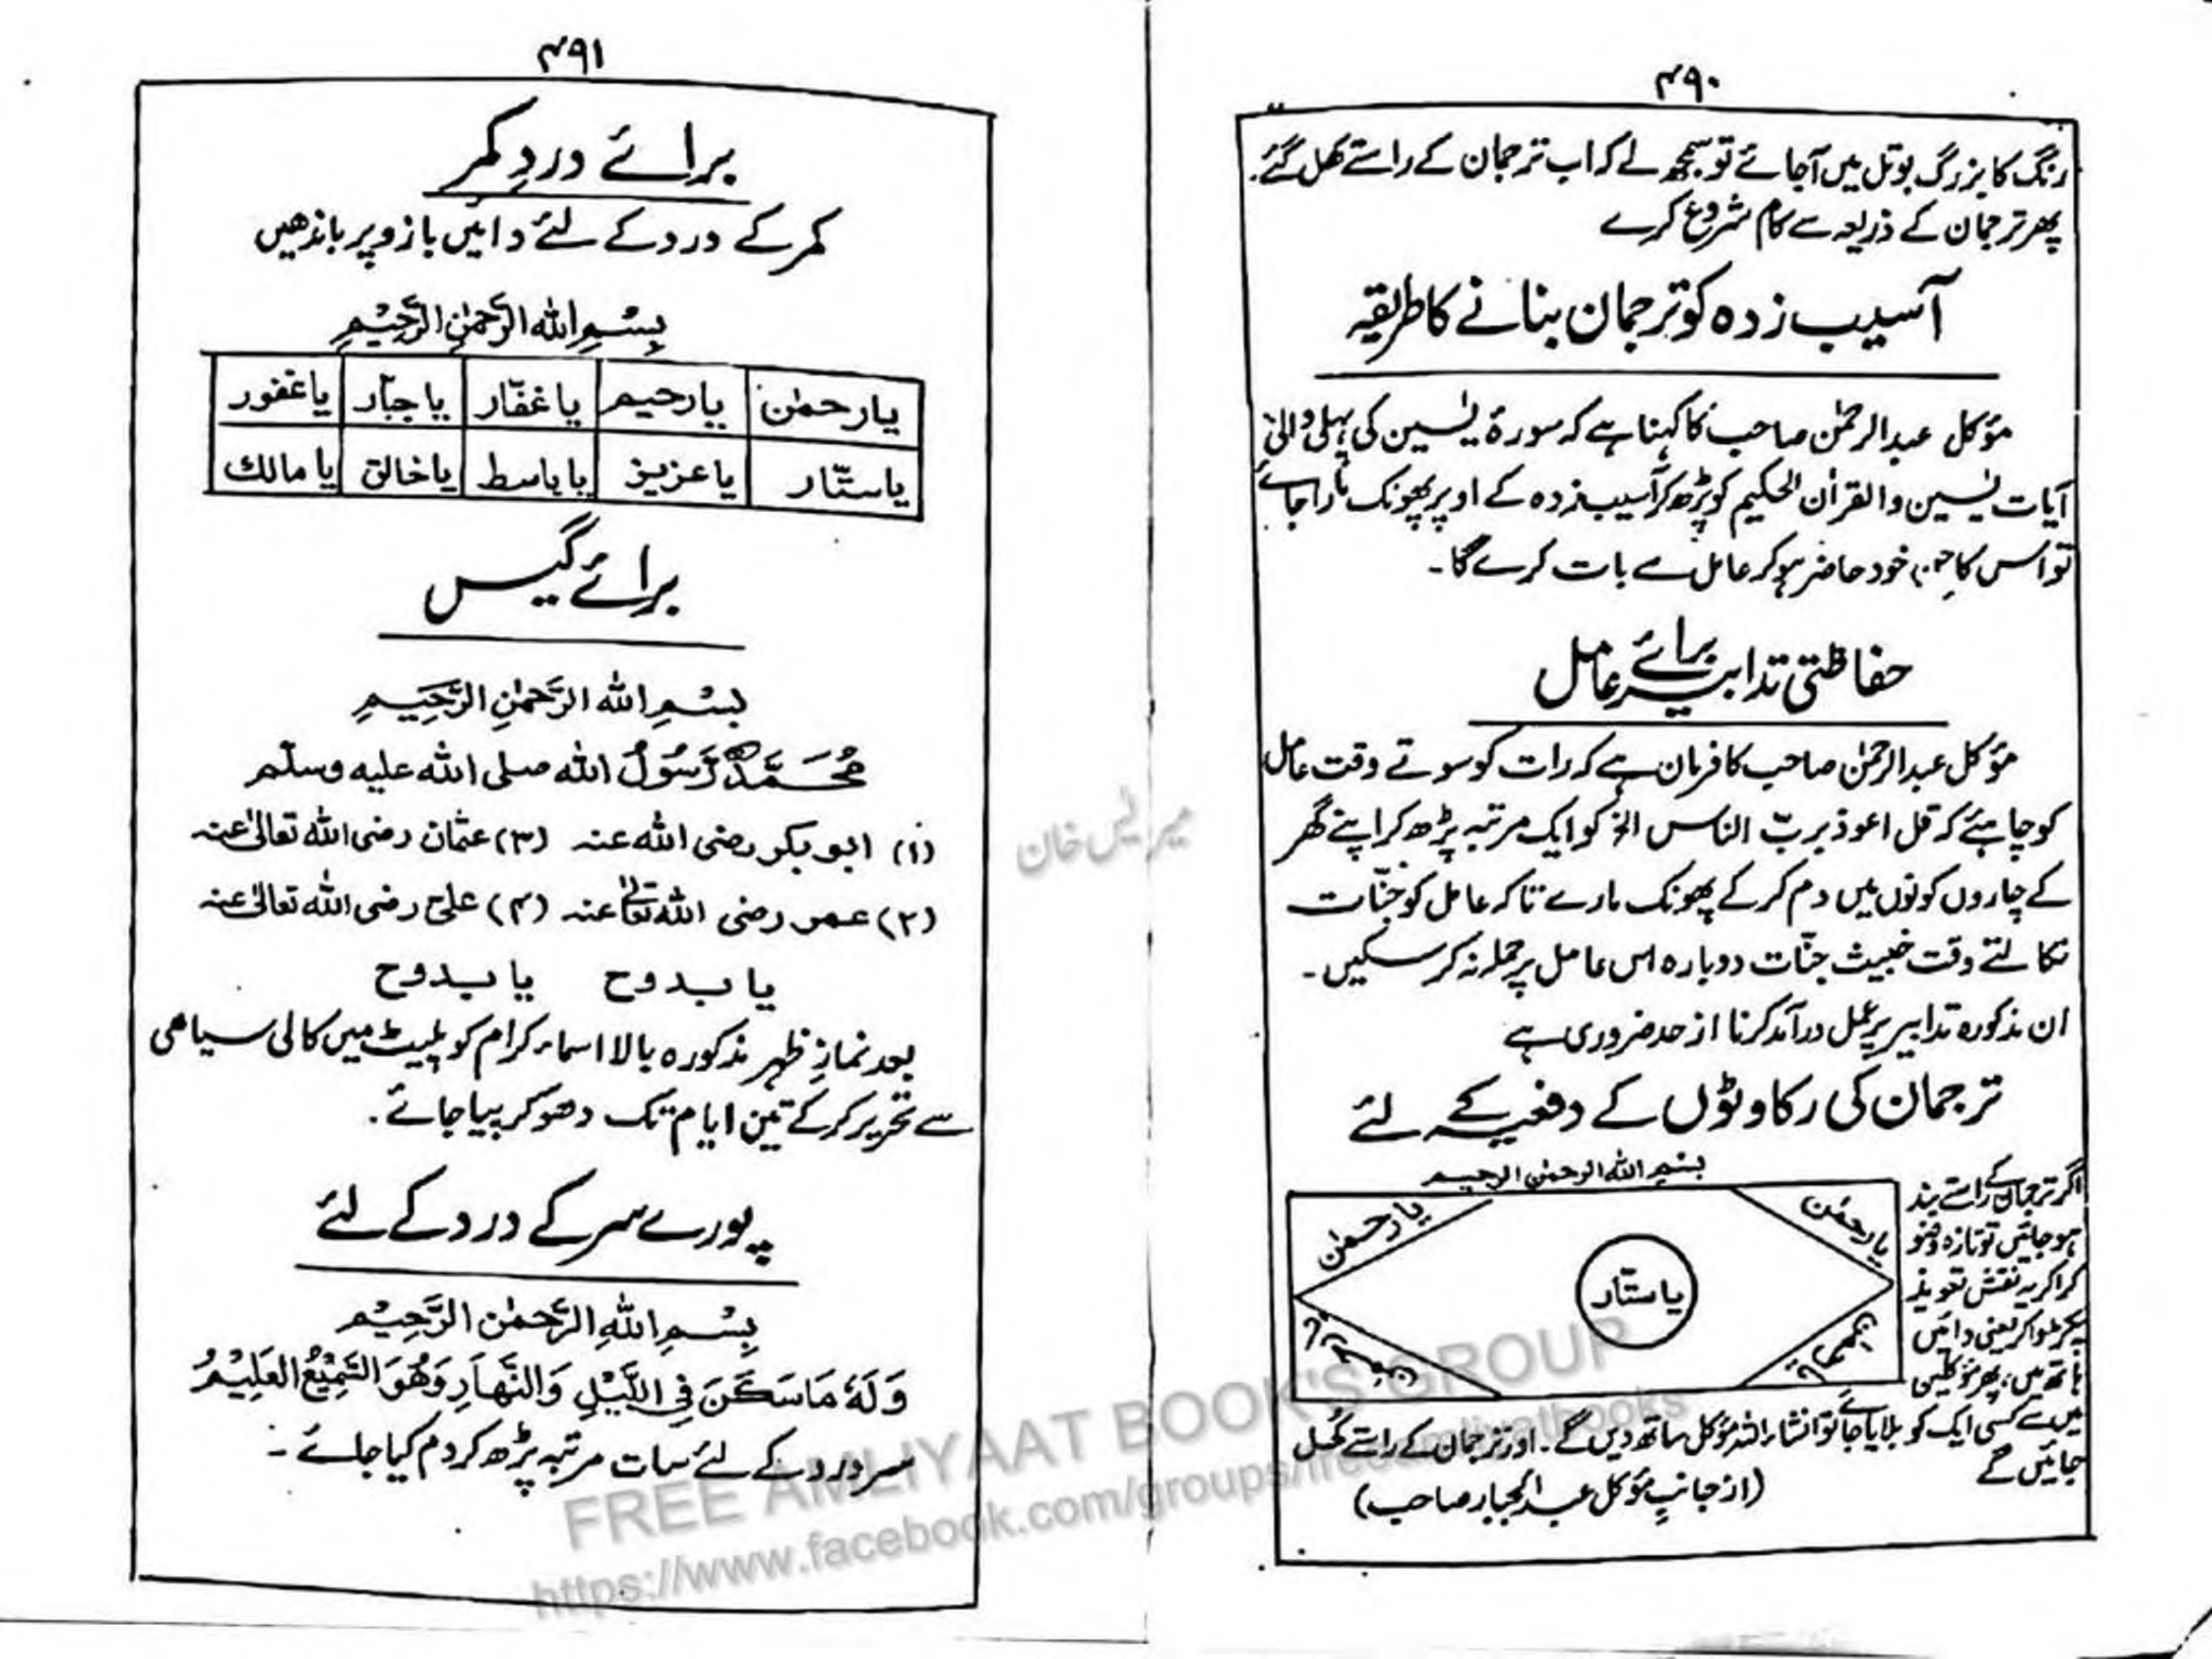 ۴۹۰
رنگ کا بزرگ بوتل میں آجائے تو سمجھ لے کہ اب ترجمان کے راستے کھل گئے۔
پھر ترجمان کے ذریعہ سے کام شروع کرے
آسیب زدہ کو ترجمان بنانے کا طریقہ
مؤکل عبدالرحمٰن صاحب کا کہنا ہے کہ سورۂ یٰسین کی پہلی والی
آیات یٰسین والقراٰن الحکیم کو پڑھ کر آسیب زدہ کے اوپر پھونک مارا جائے
تو اس کا جن خود حاضر ہوکر عامل سے بات کرے گا۔
حفاظتی تدابیر برائے عامل
مؤکل عبدالرحمٰن صاحب کا فرمان ہے کہ رات کو سوتے وقت عامل
کو چاہئے کہ قل اعوذ بربّ الناس الخ کو ایک مرتبہ پڑھ کر اپنے گھر
کے چاروں کونوں میں دم کر کے پھونک مارے تاکہ عامل کو جنّات
نکالتے وقت خبیث جنّات دوبارہ اس عامل پر حملہ نہ کر سکیں۔
ان مذکورہ تدابیر پر عمل درآمد کرنا از حد ضروری ہے
ترجمان کی رکاوٹوں کے دفعیہ کے لئے
بسم الله الرحمٰن الرحيم
یا رحمٰن
یا رحمٰن
یا ستّار
اگر ترجمان کے راستے بند
ہو جائیں تو تازہ وضو
کرا کر یہ نقش تعویذ
پکڑوا کر یعنی دائیں
ہاتھ میں، پھر مؤکلین
میں سے کسی ایک کو بلایا جائے تو انشاء اللہ مؤکل ساتھ دیں گے۔ اور ترجمان کے راستے کھل
جائیں گے
(از جانبِ مؤکل عبدالجبار صاحب)
۴۹۱
برائے دردِ کمر
کمر کے درد کے لئے دائیں بازو پر باندھیں
بِسْمِ اللهِ الرَّحْمٰنِ الرَّحِيْمِ
یا رحمٰن یا رحیم یا غفّار یا جبّار یا غفور
یا ستّار یا عزیز یا باسط یا خالق یا مالك
برائے گیس
بِسْمِ اللهِ الرَّحْمٰنِ الرَّحِيْمِ
مُحَمَّدٌ رَّسُوْلُ الله صلی الله علیه وسلّم
(۱) ابو بکر رضی الله عنه (۳) عثمان رضی الله تعالیٰ عنه
(۲) عمر رضی الله تعالیٰ عنه (۴) علی رضی الله تعالیٰ عنه
یا بدوح یا بدوح
بعد نمازِ ظہر مذکورہ بالا اسماء کرام کو پلیٹ میں کالی سیاھی
سے تحریر کر کے تین ایام تک دھو کر پیا جائے۔
پورے سر کے درد کے لئے
بِسْمِ اللهِ الرَّحْمٰنِ الرَّحِيْمِ
وَلَهٗ مَا سَكَنَ فِى الَّيْلِ وَالنَّهَارِ وَهُوَ السَّمِيْعُ الْعَلِيْمُ
سر درد کے لئے سات مرتبہ پڑھ کر دم کیا جائے۔
FREE AMLIYAAT BOOK'S GROUP
https://www.facebook.com/groups/freeamliyatbooks